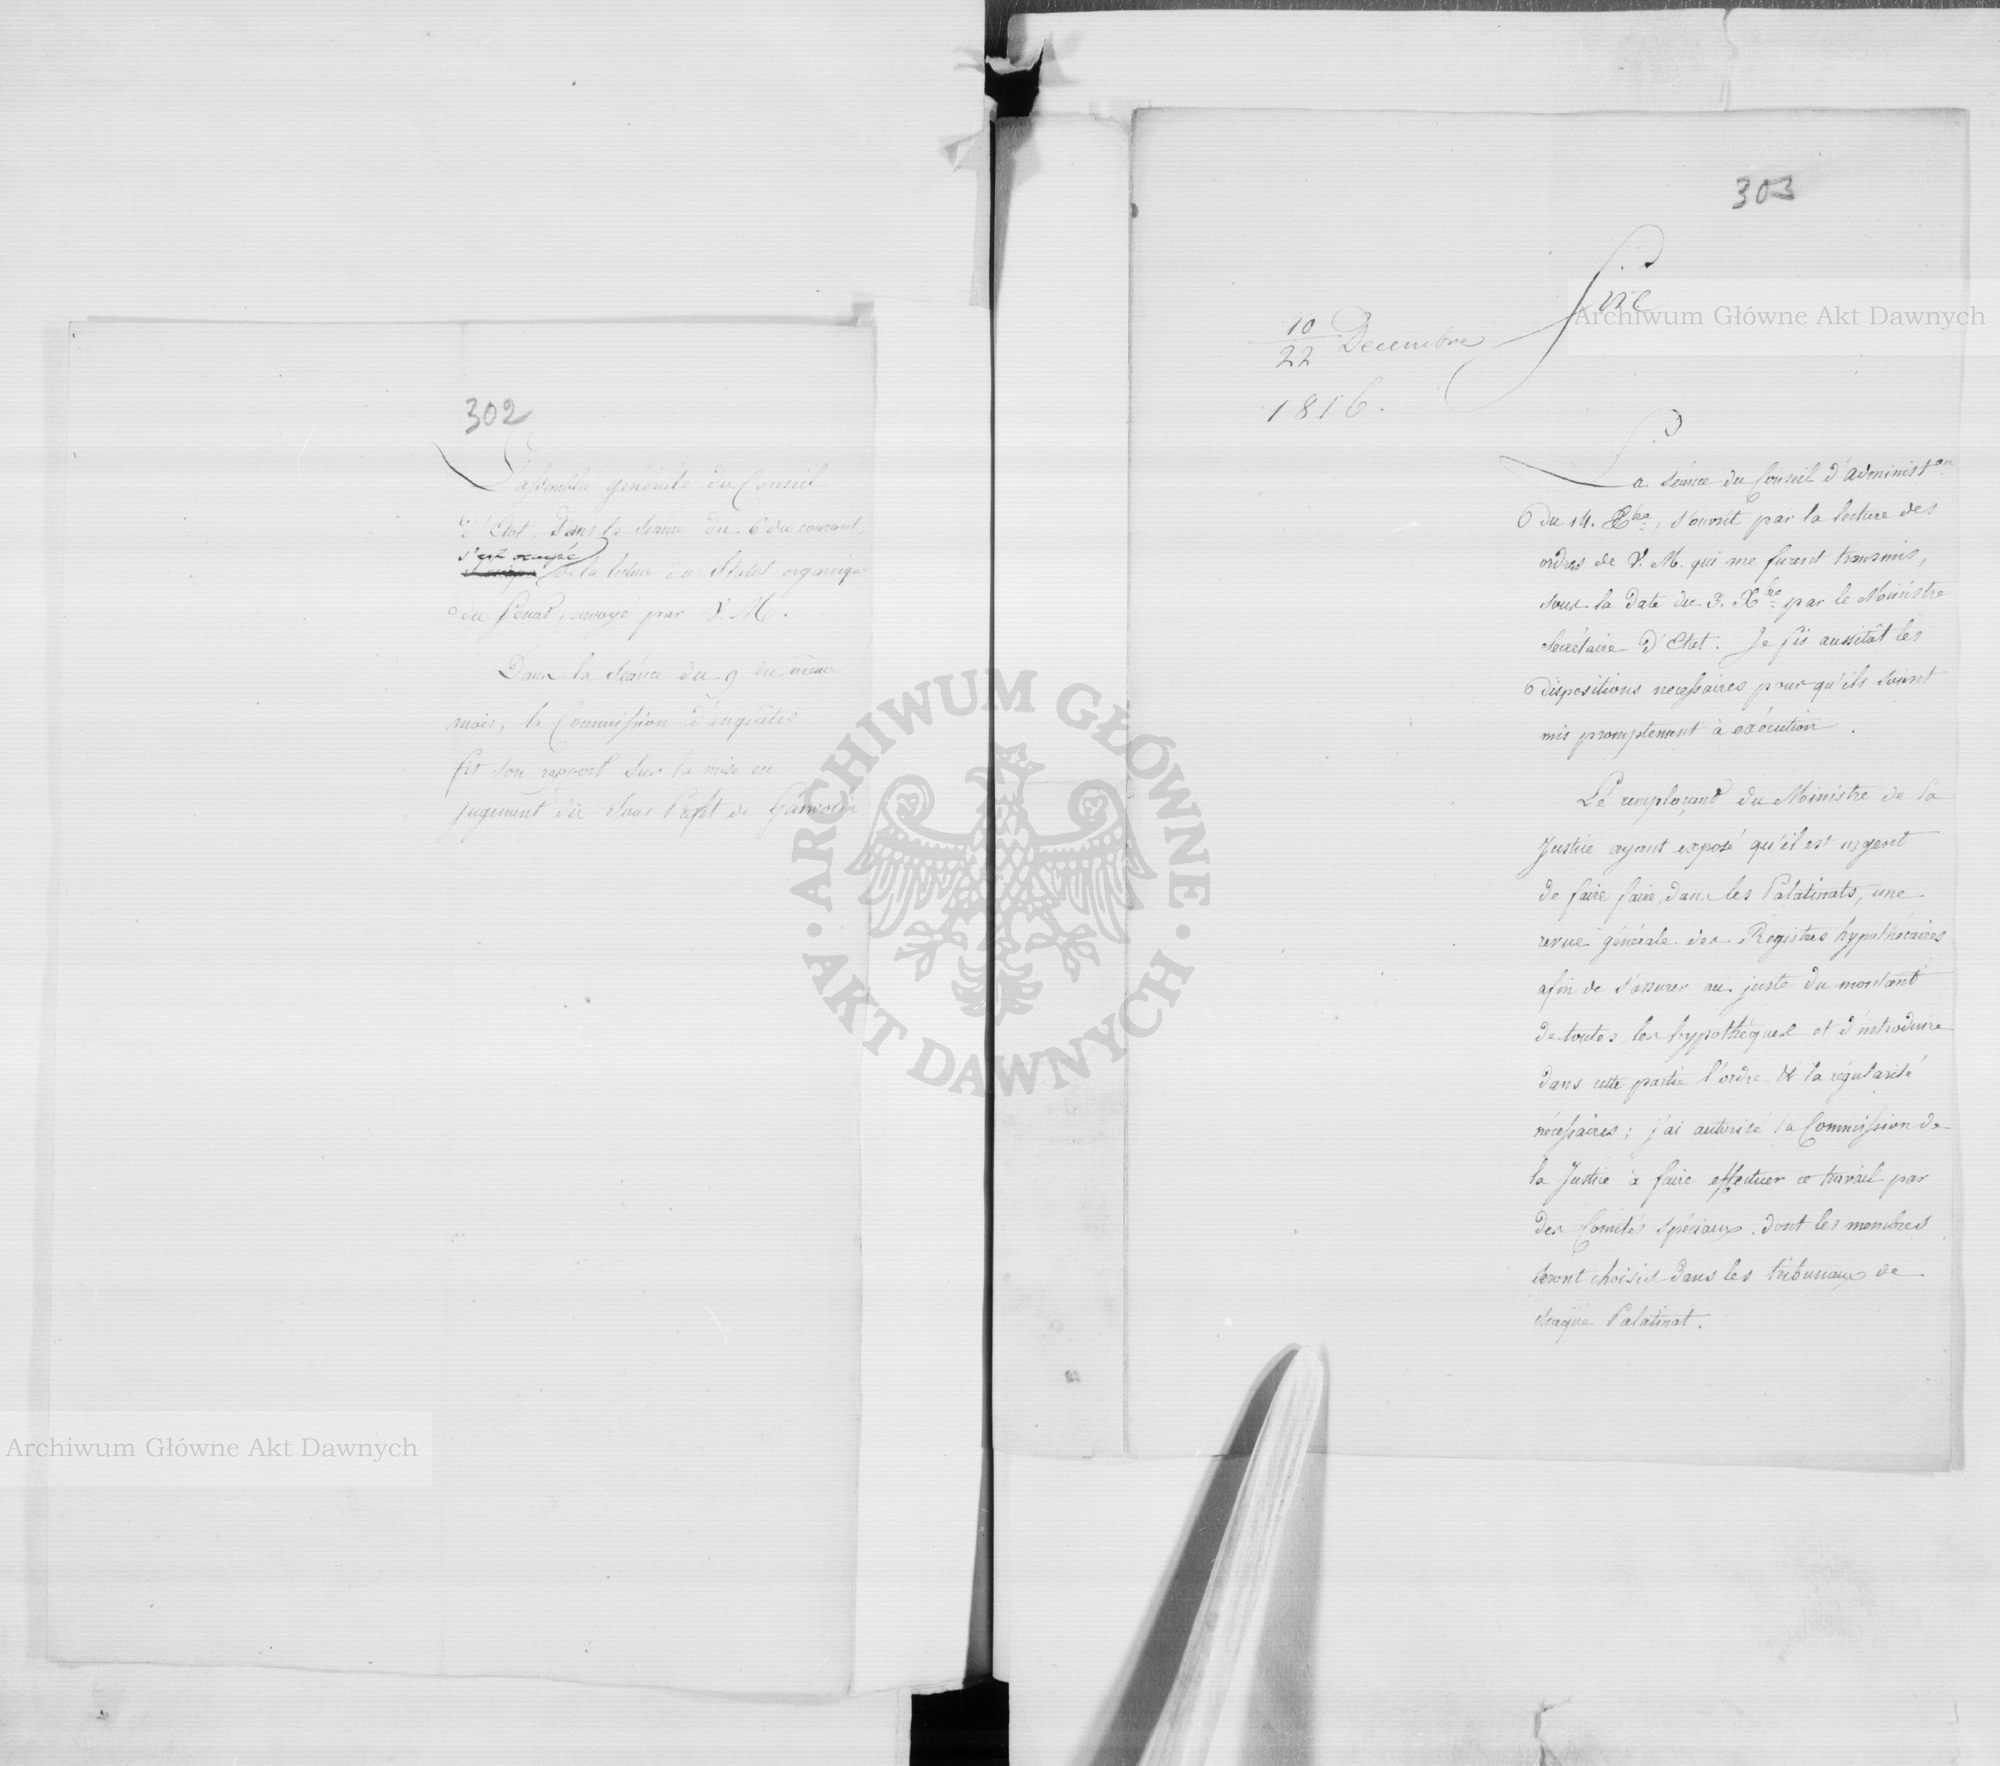 302
L'assemblée générale du Conseil
d'Etat, dans la séance du 6 du courant,
s'est occupée
de la lecture du Statut organique
du Senat, envoyé par V. M.
Dans la séance du 9 du même
mois, la Commission d'enquêtes
fit son rapport sur la mise en
jugement du Sous Préfet de Garwolin.
303
Sire
10
22 Decembre
1816.
La séance du Conseil d'administon
du 14. Xbre, s'ouvrit par la lecture des
ordres de V. M. qui me furent transmis,
sous la date du 3. Xbre par le Ministre
Secrétaire d'Etat. Je fis aussitôt les
dispositions necessaires pour qu'ils soient
mis promptement à exécution.
Le remplaçant du Ministre de la
Justice ayant exposé qu'il est urgent
de faire faire, dans les Palatinats, une
revue générale des Registres hypothécaires
afin de s'assurer au juste du montant
de toutes les hypothèques et d'introduire
dans cette partie l'ordre & la régularité
nécessaires; j'ai autorisé la Commission de
la Justice à faire effectuer ce travail par
des Comités spéciaux dont les membres
seront choisis dans les tribunaux de
chaque Palatinat.
Archiwum Główne Akt Dawnych
Archiwum Główne Akt Dawnych
ARCHIWUM GŁÓWNE
AKT DAWNYCH